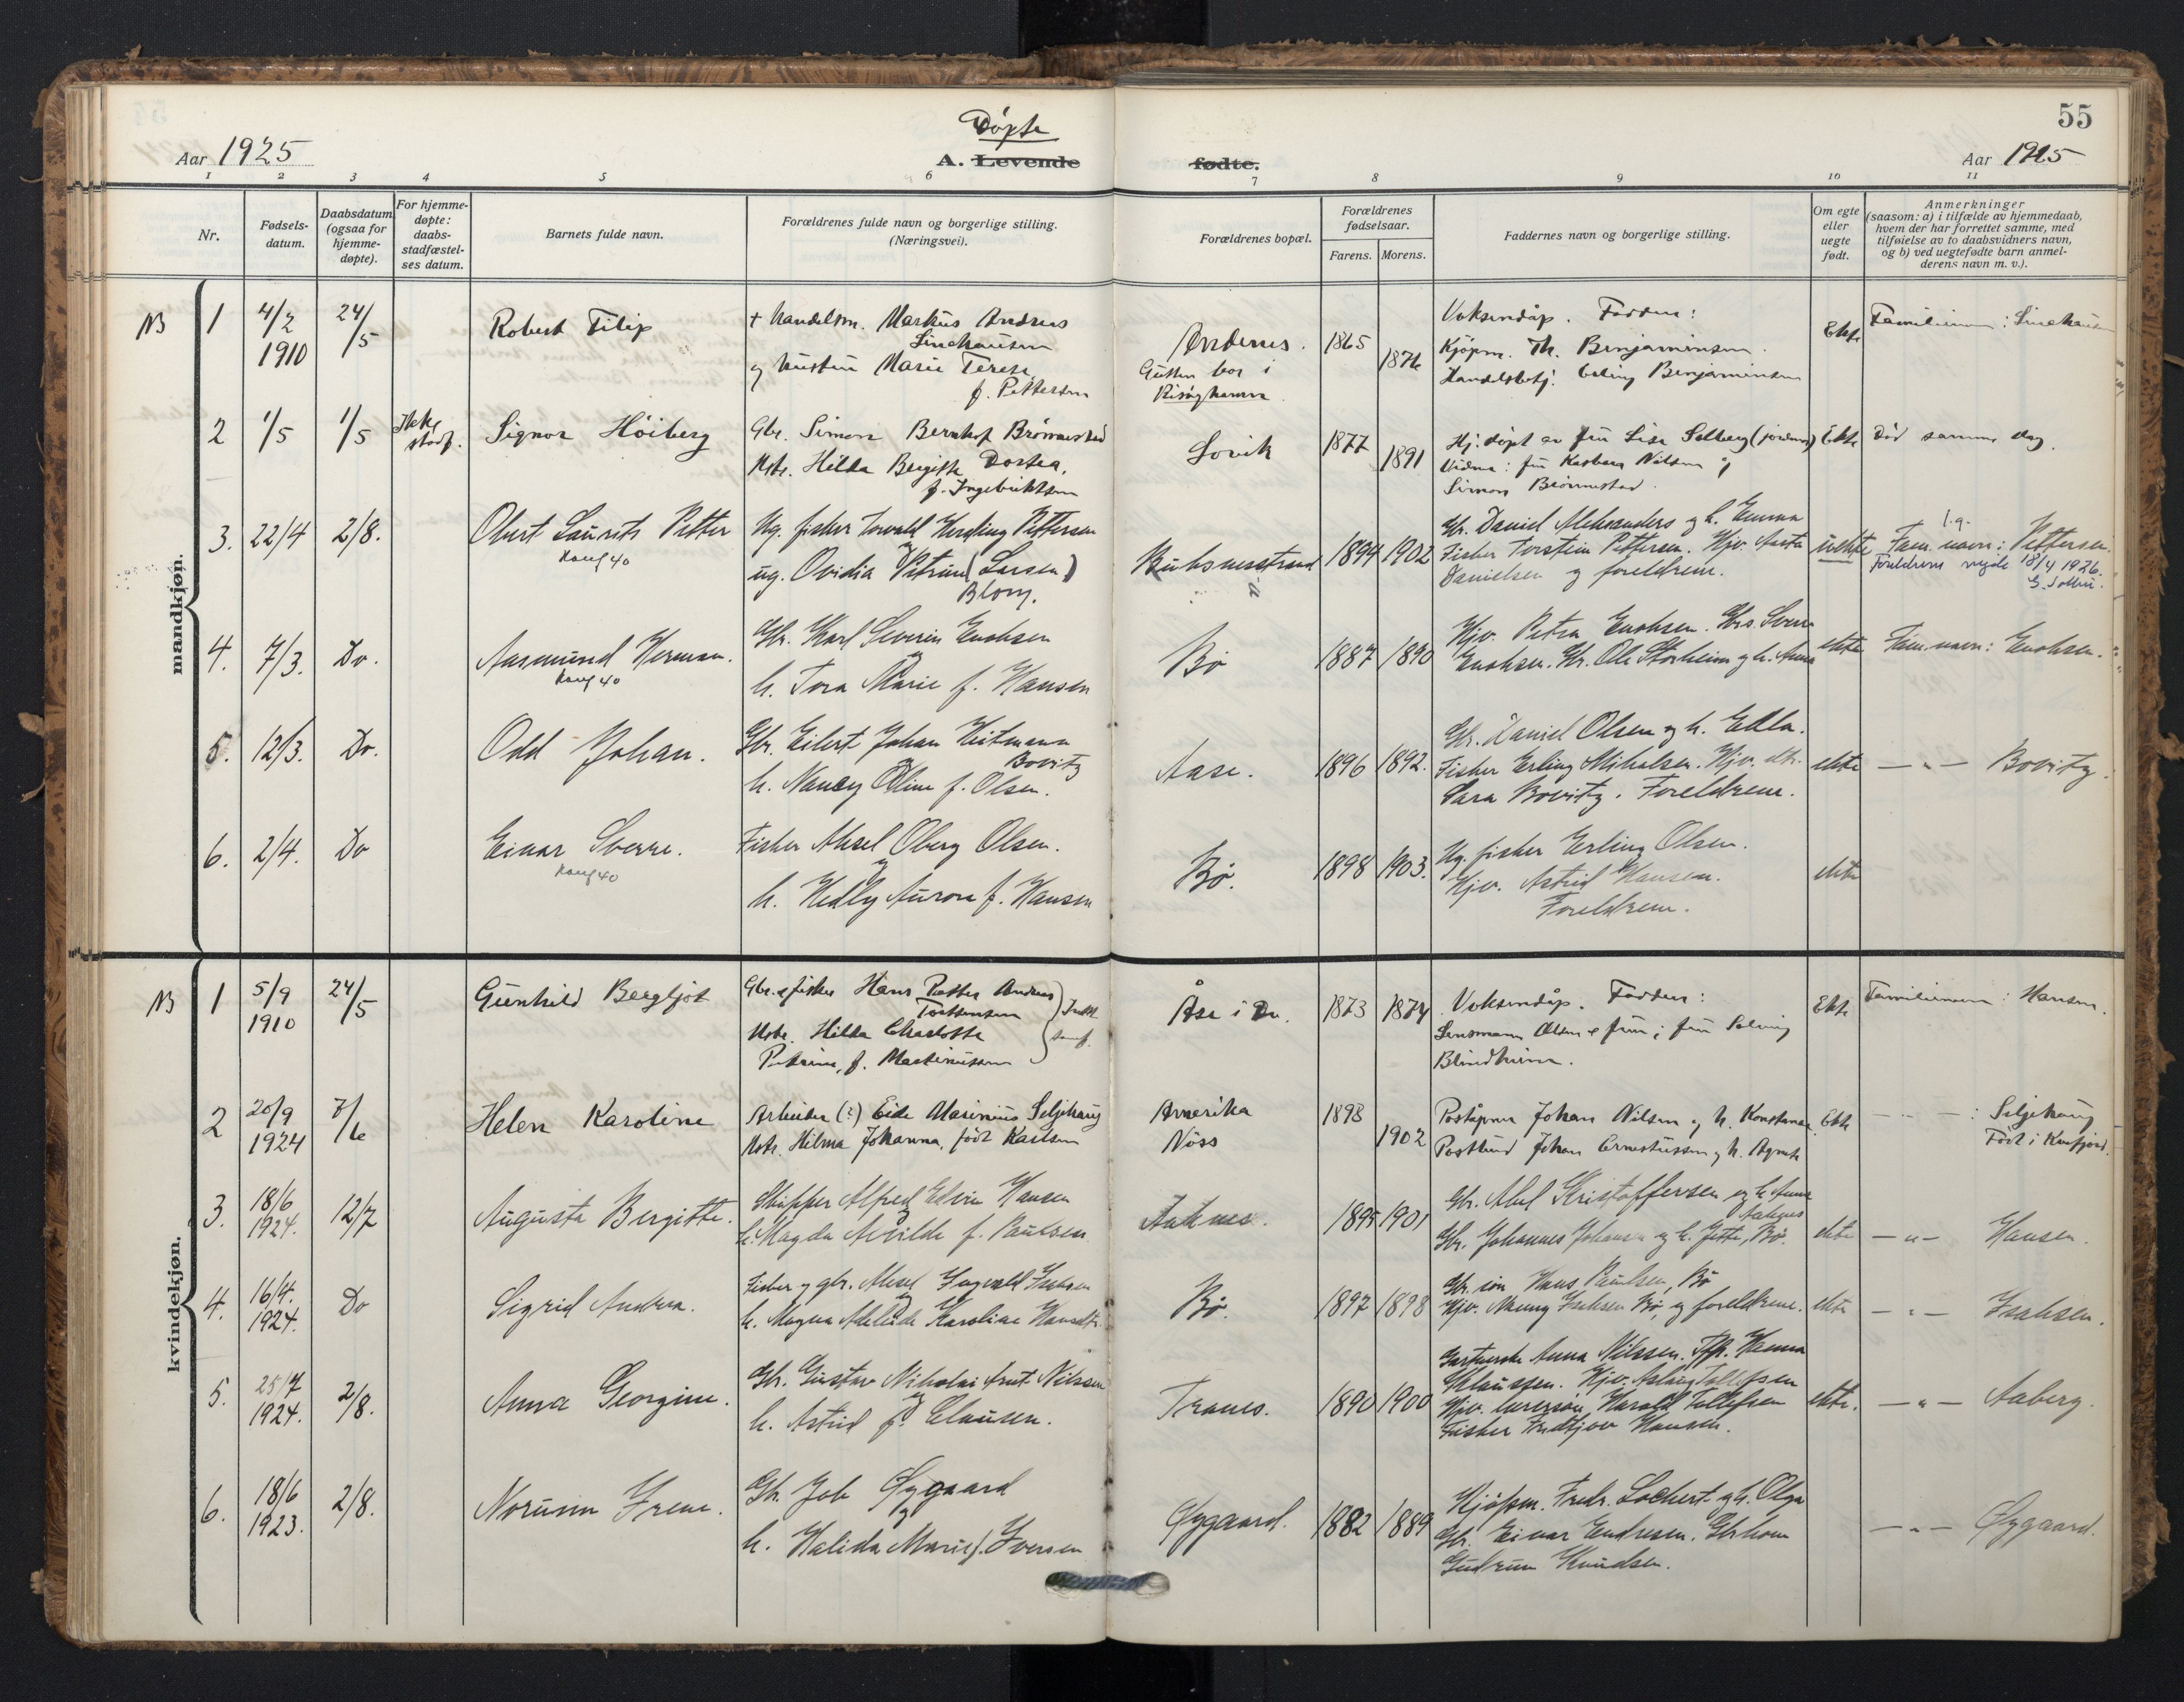 55
Aar 1925
Døpte
A. Levende
fødte.
Aar 1925
1 2 3 4 5 6 7 8 9 10 11
Nr.
Fødsels-
datum.
Daabsdatum
(ogsaa for
hjemme-
døpte).
For hjemme-
døpte:
daabs-
stadfæstel-
ses datum.
Barnets fulde navn.
Forældrenes fulde navn og borgerlige stilling.
(Næringsvei).
Forældrenes bopæl.
Forældrenes
fødselsaar.
Farens. Morens.
Faddernes navn og borgerlige stilling.
Om egte
eller
uegte
født.
Anmerkninger
(saasom: a) i tilfælde av hjemmedaab,
hvem der har forrettet samme, med
tilføielse av to daabsvidners navn,
og b) ved uegtefødte barn anmel-
derens navn m. v.).
mandkjøn.
NB 1 4/2 1910 24/5 Robert Filip
+ Handelsm. Markus Andreas
og hustru Marie Terese
f. Pettersen
Andenes. 1865 1876
Gutten bor i
Risøyhamn
Voksendåp. Faddere:
Kjøpm. Th. Benjaminsen.
Handelsbetj. Erling Benjaminsen
Ekte
2 1/5 1/5 Ikke
stadf.
Signor Høiberg
Gbr. Simon Bernhof Brønnestad
Hstr. Hilda Bergitte Dortea,
f. Ingebriktsen
1877 1891
Hj. døpt av fru Lisa Solberg (jordmor)
Vidner: fru Kasbara Nilsen og
Simon Brønnestad.
Ekte Død samme dag.
3. 22/4 2/8. Obert Laurits Petter
Konf 40
Ug. fisker Torvald Herding Pettersen
og
ug. Ovidia Petrine (Larsen)
Blom.
1894 1902
Gbr. Daniel Aleksanders og h. Emma
Fisker Torstein Pettersen. Hjv. Aasta
Danielsen og foreldrene.
uekte
Fam. navn: Pettersen.
18/4 1926.
4. 7/3. Do. Aasmund Herman.
Konf 40
Gbr. Karl Severin Enoksen
og
h. Tora Marie f. Hansen
Bø 1887 1890
Hjv. Petra Enoksen. Gbrs. Sverre
Enoksen. Gbr. Ole Storheim og h. Anna
ekte Fam. navn: Enoksen.
5. 12/3. Do. Odd Johan.
Gbr. Eilert Johan Heitmann
Bovitz
h. Nancy Oline f. Olsen.
Aase. 1896 1892.
Gbr. Daniel Olsen og h. Edla.
Fisker Erling Mikalsen. Hjv. dtr.
Sara Bovitz. Foreldrene.
ekte — " — Bovitz.
6. 2/4. Do Einar Sverre.
Konf 40
Fisker Aksel Oberg Olsen.
og
h. Hedly Aurora f. Hansen
Bø. 1898 1903.
Ug. fisker Erling Olsen.
Hjv. Astrid Hansen.
Foreldrene.
ekte
kvindekjøn.
NB 1 5/9 1910 24/5 Gunhild Bergljot
Gbr. & fisker Hans Petter Andreas
Torstensen
Hstr. Hilda Charlotte
Petrine, f. Martinussen
Åse i Dv. 1873 1874
Voksendåp. Faddere:
Lensmann Olsen & frue; fru Solveig
Blindheim.
Ekte Familienavn: Hansen.
2 20/9 1924 7/6 Helen Karoline
Arbeider (?) Eide Marinius Seljehaug
Hstr. Hilma Johanna, født Karlsen
Amerika 1898
Nöss 1902
Poståpner Johan Nilsen og h. Konstanse.
Postbud Johan Ernestussen og h. Agnete
Ekte — " — : Seljehaug
Født i Kvæfjord.
3. 18/6 1924. 12/7 Augusta Bergitte.
Skipper Alfred Edvin Hansen
og
h. Magda Alvilde f. Paulsen
1895 1901
Gbr. Abel Kristoffersen og h. Anna
Gbr. Johannes Johansen og h. Jette, Bø.
ekte — " — Hansen.
4. 16/4. 1924. Do Sigrid Andrea.
Fisker og gbr. Aksel Ingvald Isaksen
og
h. Magna Adeleide Karoline Hansdtr.
Bø. 1897 1898
Gbr. søn Hans Paulsen, Bø
Hjv. Nanny Isaksen Bø, og foreldrene.
ekte — " — Isaksen.
5. 25/7 1924. 2/8. Anna Georgine.
Gbr. Gustav Nikolai Arnt Nilssen
og
h. Astrid f. Clausen.
Tranes. 1890 1900
Anna Nilssen. Hanna
Klaussen. Hjv. Aslaug Tollefsen
Harald Tollefsen
Fisker Fridtjov Hansen.
ekte. — " — Aaberg.
6. 18/6 1923. 2/8. Norunn Irene.
Gbr. Job Øygaard
og
h. Halida Marie f. Iversen
Øygaard. 1882 1889
Kjøpm. Fredr. Lochert og h. Olga
Gbr. Einar Endresen.
Gudrun Knudsen.
— " — Øygaard.